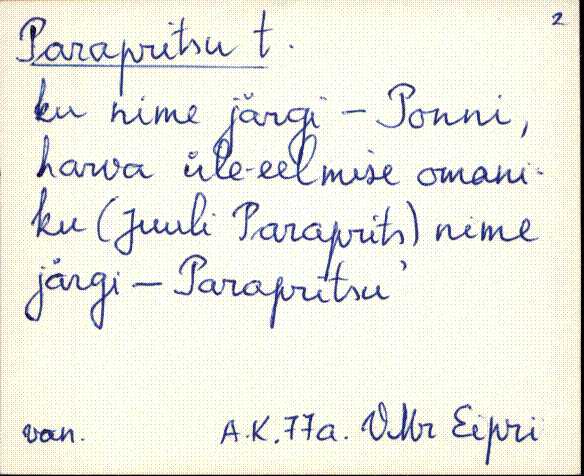 2
Parapritsu t.
ku nime järgi – Ponni,
harva üle-eelmise omani-
ku (Juuli Paraprits) nime
järgi – Parapritsu'
van. A.K. 77a. VMr Eipri